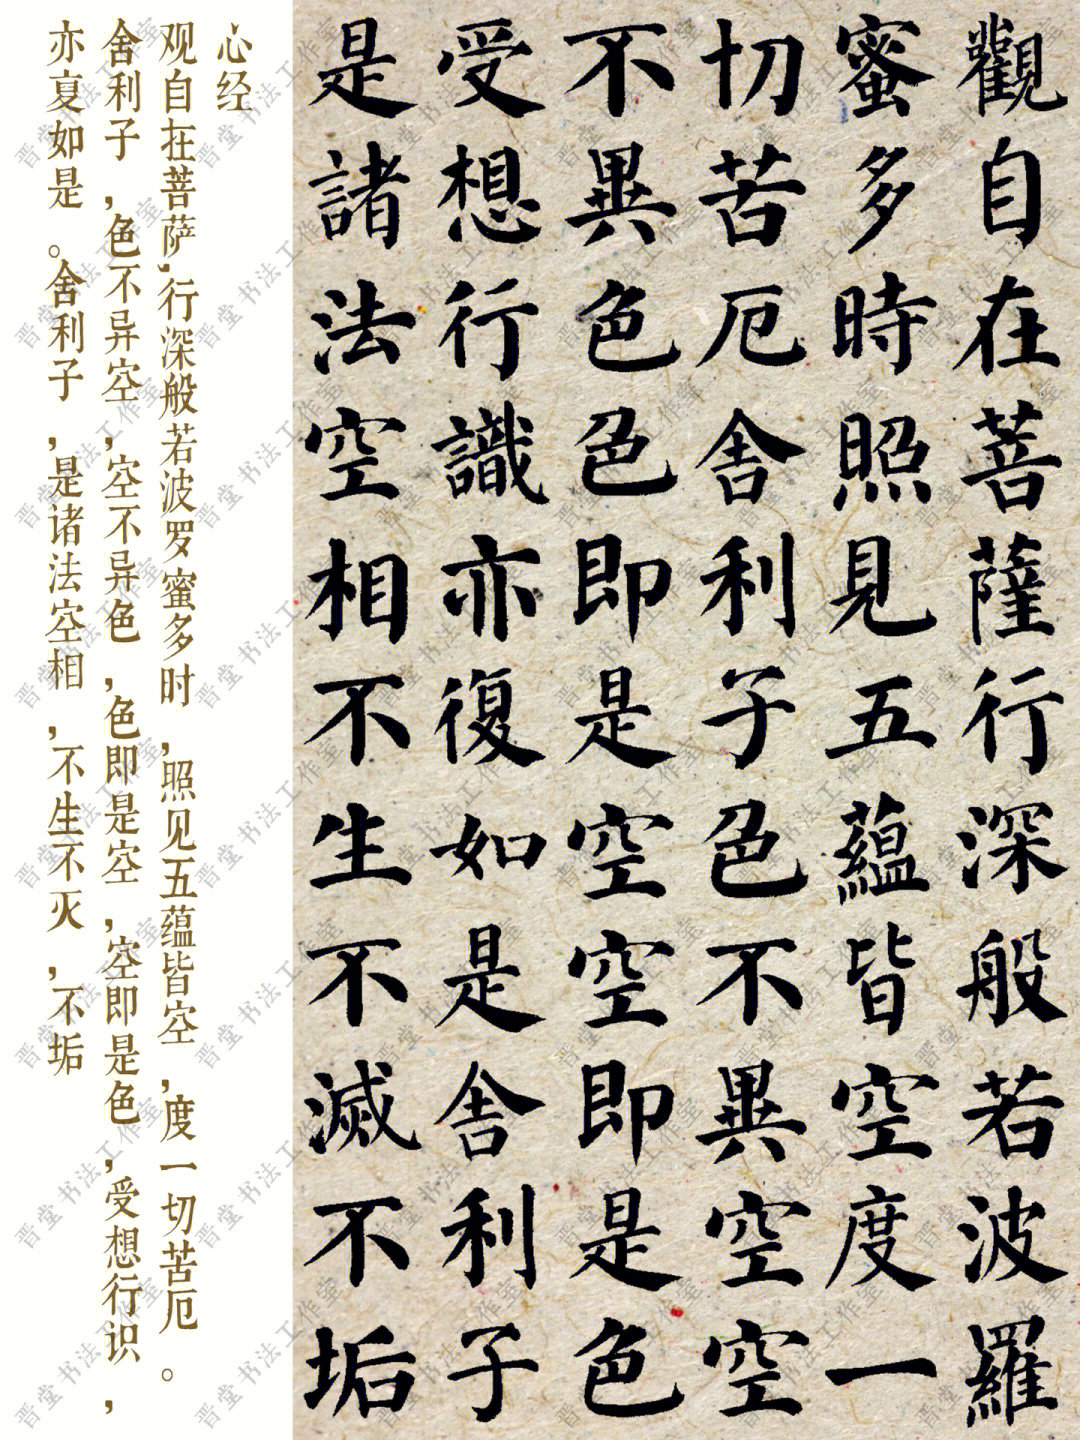 觀自在菩薩行深般若波羅
蜜多時照見五蘊皆空度一
切苦厄舍利子色不異空空
不異色色即是空空即是色
受想行識亦復如是舍利子
是諸法空相不生不滅不垢
心经
观自在菩萨,行深般若波罗蜜多时,照见五蕴皆空,度一切苦厄。
舍利子,色不异空,空不异色,色即是空,空即是色,受想行识,
亦夏如是。舍利子,是诸法空相,不生不灭,不垢
晋堂书法工作室